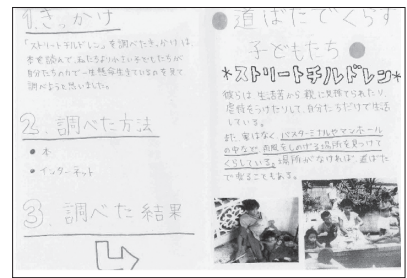 1.きっかけ
「ストリートチルドレン」を調べたきっかけは
本を読んで、私たちより小さい子どもたちが
自分たちの力で一生懸命生きているのを見て
調べようと思いました。
2.調べた方法
●本
●インターネット
3.調べた結果
●道ばたでくらす
子どもたち●
*ストリートチルドレン*
彼らは生活苦から親に見捨てられたり、
虐待をうけたりして、自分たちだけで生活
している。
また、家はなく、バスターミナルやマンホール
の中など、雨風をしのげる場所を見つけて
くらしている。場所がなければ、道ばた
で寝ることもある。